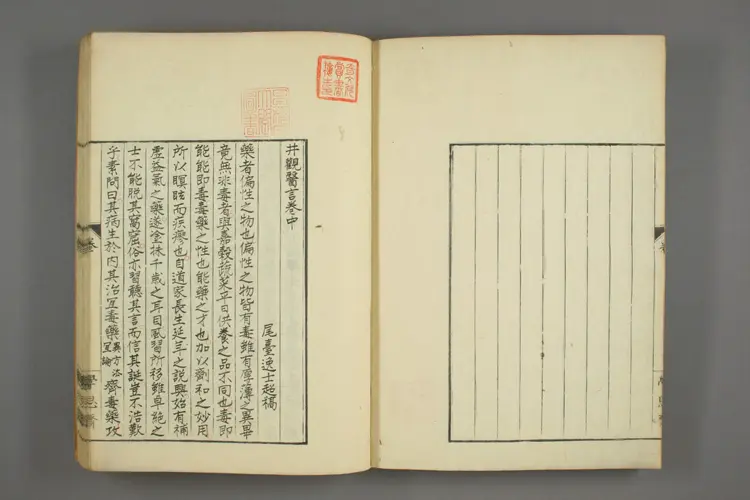 井觀醫言卷中
尾臺逸士超稿
藥者偏性之物也偏性之物皆有毒雖有厚薄之異畢
竟無非毒者與嘉穀蔬菜平日供養之品不同也毒即
能能即毒毒藥之性也能藥之才也加以劑和之妙用
所以瞑眩而疾瘳也自道家長生延年之說興始有補
虛益氣之藥遂塗抹千歲之耳目風習所移雖卓絶之
士不能脫其窩窟俗亦習聽其言而信其誕豈不浩歎
乎素問曰其病生於內其治宜毒藥異方法宜論齊毒藥攻
卷